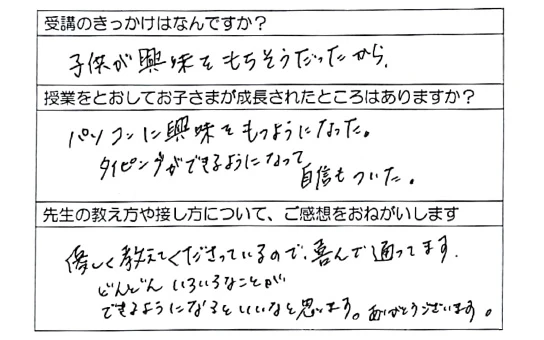 受講のきっかけはなんですか？
子供が興味をもちそうだったから.
授業をとおしてお子さまが成長されたところはありますか？
パソコンに興味をもつようになった。
タイピングができるようになって
自信もついた。
先生の教え方や接し方について、ご感想をおねがいします
優しく教えてくださっているので、喜んで通ってます.
どんどん いろいろなことが
できるようになるといいなと思います。ありがとうございます。